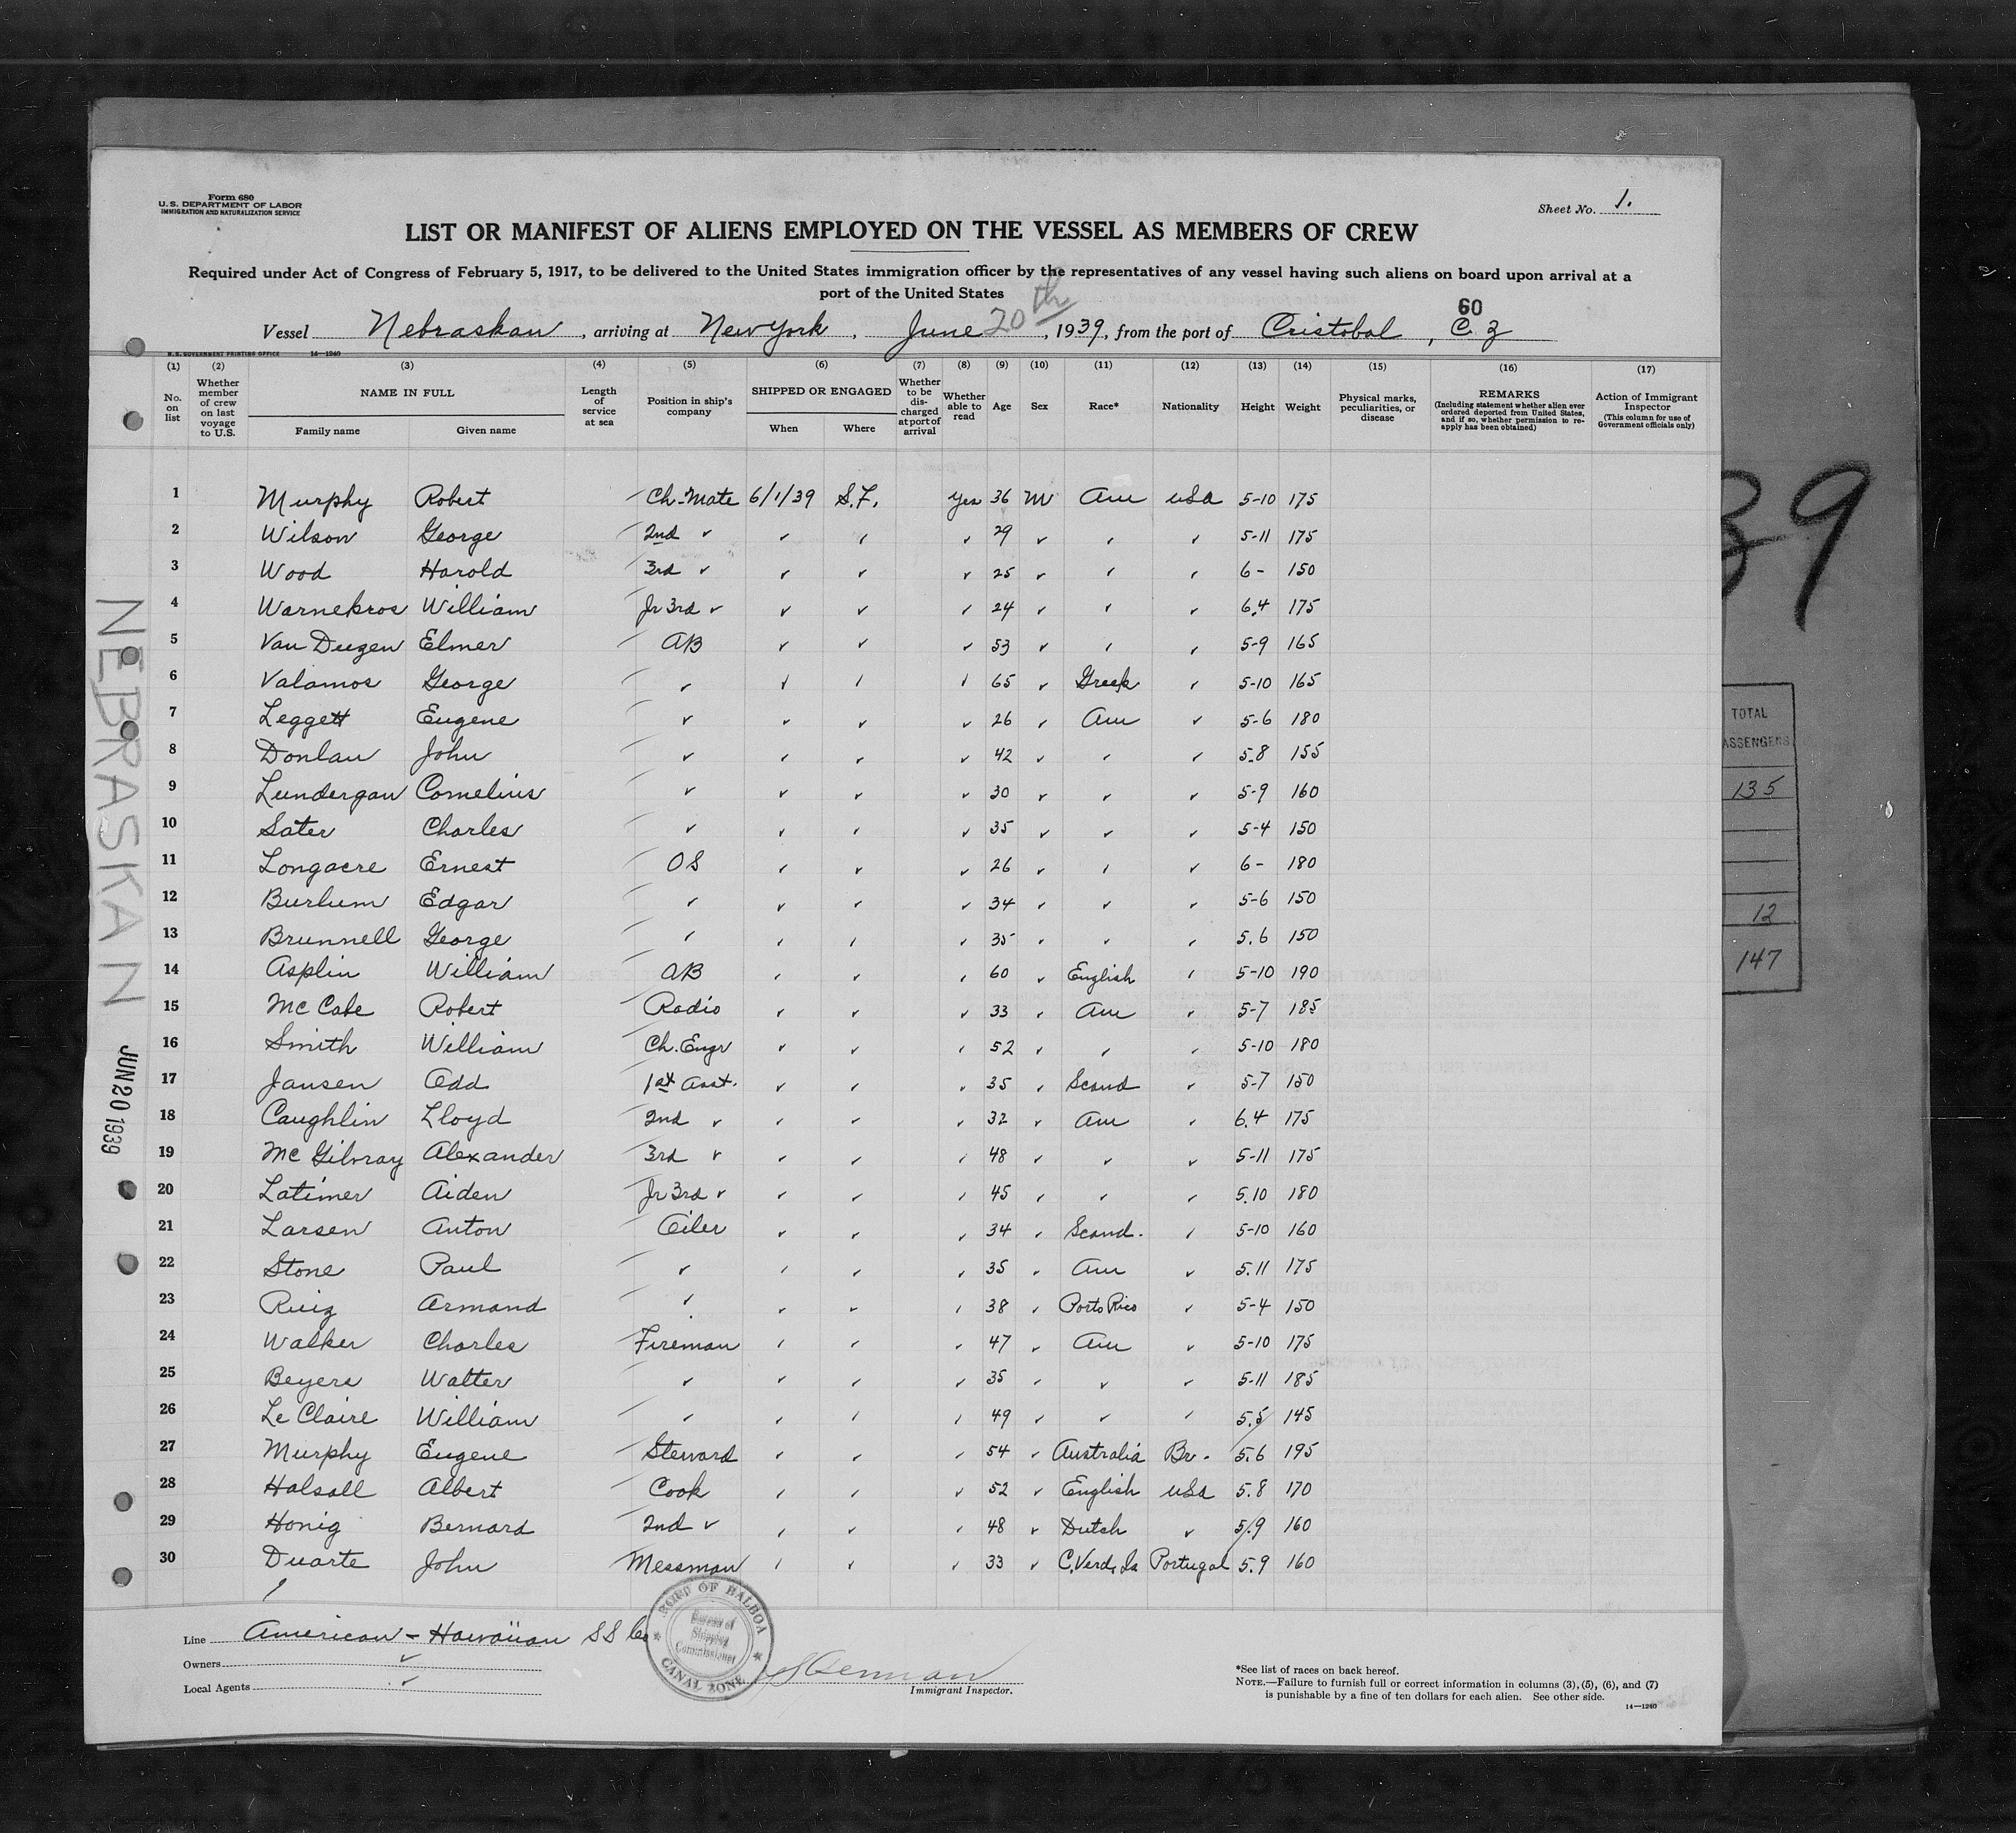 Form 680
U.S. DEPARTMENT OF LABOR
IMMIGRATION AND NATURALIZATION SERVICE
Sheet No. 1.
LIST OR MANIFEST OF ALIENS EMPLOYED ON THE VESSEL AS MEMBERS OF CREW
Required under Act of Congress of February 5, 1917, to be delivered to the United States immigration officer by the representatives of any vessel having such aliens on board upon arrival at a
port of the United States
60
Vessel Nebraskan, arriving at New York, June 20th, 1939, from the port of Cristobal, C.Z
U.S. GOVERNMENT PRINTING OFFICE 14—1240
(1) (2) (3) (4) (5) (6) (7) (8) (9) (10) (11) (12) (13) (14) (15) (16) (17)
No. on list
Whether member of crew on last voyage to U.S.
NAME IN FULL
Family name Given name
Length of service at sea
Position in ship's company
SHIPPED OR ENGAGED
When Where
Whether to be dis-charged at port of arrival
Whether able to read
Age
Sex
Race*
Nationality
Height
Weight
Physical marks, peculiarities, or disease
REMARKS
(Including statement whether alien ever ordered deported from United States, and if so, whether permission to re-apply has been obtained)
Action of Immigrant Inspector
(This column for use of Government officials only)
1 Murphy Robert Ch-Mate 6/1/39 S.F. Yes 36 M Am USA 5-10 175
2 Wilson George 2nd ✓ ✓ ✓ ✓ 29 ✓ ✓ ✓ 5-11 175
3 Wood Harold 3rd ✓ ✓ ✓ ✓ 25 ✓ ✓ ✓ 6- 150
4 Warnekros William Jr 3rd ✓ ✓ ✓ ✓ 24 ✓ ✓ ✓ 6.4 175
5 Van Duzen Elmer AB ✓ ✓ ✓ 53 ✓ ✓ ✓ 5-9 165
6 Valamos George ✓ ✓ ✓ ✓ 65 ✓ Greek ✓ 5-10 165
7 Leggett Eugene ✓ ✓ ✓ ✓ 26 ✓ Am ✓ 5-6 180
8 Donlan John ✓ ✓ ✓ ✓ 42 ✓ ✓ ✓ 5.8 155
9 Lundergan Cornelius ✓ ✓ ✓ ✓ 30 ✓ ✓ ✓ 5-9 160
10 Sater Charles ✓ ✓ ✓ ✓ 35 ✓ ✓ ✓ 5-4 150
11 Longacre Ernest OS ✓ ✓ ✓ 26 ✓ ✓ ✓ 6- 180
12 Burlum Edgar ✓ ✓ ✓ ✓ 34 ✓ ✓ ✓ 5-6 150
13 Brunnell George ✓ ✓ ✓ ✓ 35 ✓ ✓ ✓ 5.6 150
14 Asplin William AB ✓ ✓ ✓ 60 ✓ English ✓ 5-10 190
15 McCabe Robert Radio ✓ ✓ ✓ 33 ✓ Am ✓ 5-7 185
16 Smith William Ch. Engr ✓ ✓ ✓ 52 ✓ ✓ ✓ 5-10 180
17 Jansen Odd 1st Asst. ✓ ✓ ✓ 35 ✓ Scand ✓ 5-7 150
18 Caughlin Lloyd 2nd ✓ ✓ ✓ ✓ 32 ✓ Am ✓ 6.4 175
19 McGilvray Alexander 3rd ✓ ✓ ✓ ✓ 48 ✓ ✓ ✓ 5-11 175
20 Latimer Aiden Jr 3rd ✓ ✓ ✓ ✓ 45 ✓ ✓ ✓ 5.10 180
21 Larsen Anton Oiler ✓ ✓ ✓ 34 ✓ Scand. ✓ 5-10 160
22 Stone Paul ✓ ✓ ✓ ✓ 35 ✓ Am ✓ 5.11 175
23 Ruiz Armand ✓ ✓ ✓ ✓ 38 ✓ Porto Rico ✓ 5-4 150
24 Walker Charles Fireman ✓ ✓ ✓ 47 ✓ Am ✓ 5-10 175
25 Beyers Walter ✓ ✓ ✓ ✓ 35 ✓ ✓ ✓ 5-11 185
26 Le Claire William ✓ ✓ ✓ ✓ 49 ✓ ✓ ✓ 5.5 145
27 Murphy Eugene Steward ✓ ✓ ✓ 54 ✓ Australia Br. 5.6 195
28 Halsall Albert Cook ✓ ✓ ✓ 52 ✓ English USA 5.8 170
29 Honig Bernard 2nd ✓ ✓ ✓ ✓ 48 ✓ Dutch ✓ 5.9 160
30 Duarte John Messman ✓ ✓ ✓ 33 ✓ C. Verd. Is Portugal 5.9 160
NEBRASKAN
JUN 20 1939
39
TOTAL
PASSENGERS
135
12
147
Line American-Hawaiian SS Co
Owners ✓
Local Agents ✓
PORT OF BALBOA
Bureau of
Shipping
Commissioner
CANAL ZONE
Immigrant Inspector.
*See list of races on back hereof.
NOTE.—Failure to furnish full or correct information in columns (3), (5), (6), and (7)
is punishable by a fine of ten dollars for each alien. See other side.
14—1240